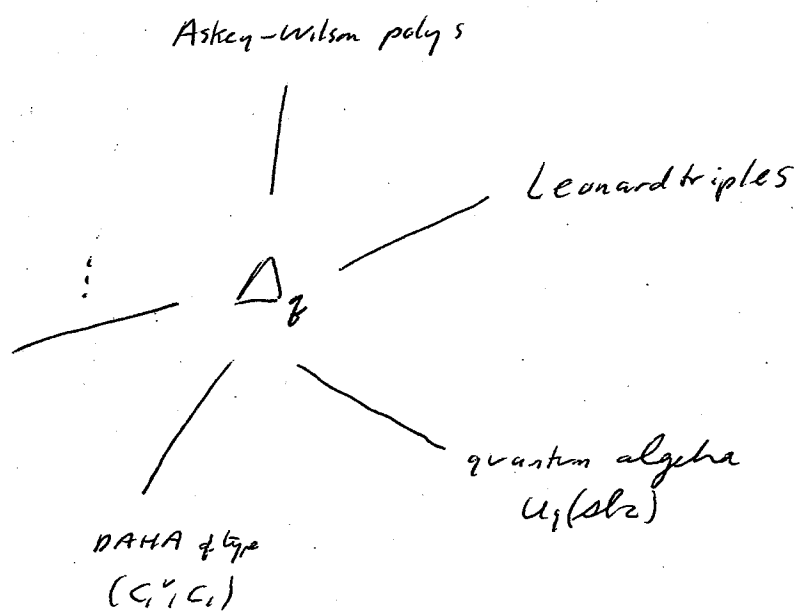 Askey-Wilson polys
Leonard triples
Δq
quantum algebra
Uq(sl2)
DAHA of type
(C1^∨, C1)